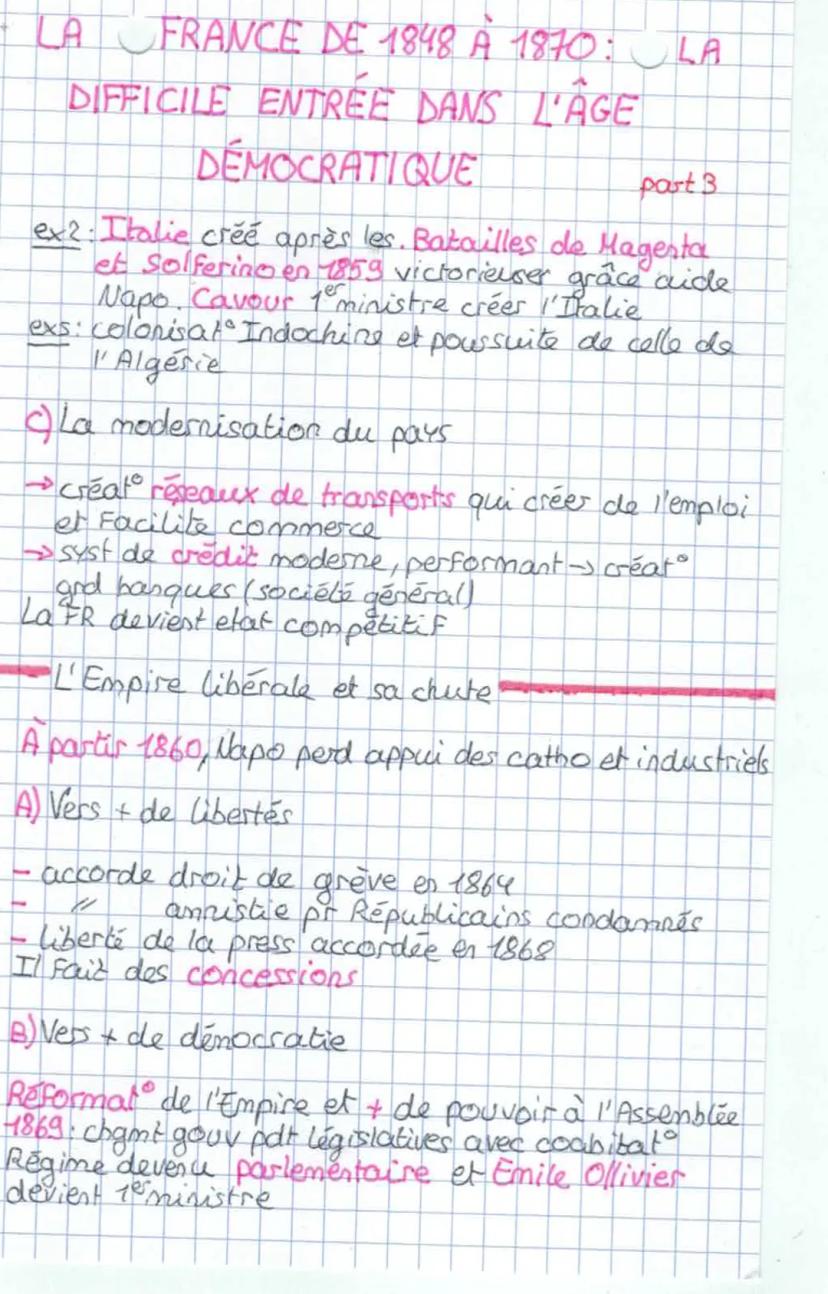 LA FRANCE DE 1848 À 1870: LA
DIFFICILE ENTRÉE DANS L'ÂGE
DÉMOCRATIQUE
part 3
ex2: Italie créé après les. Batailles de Magenta
et Solferino en 1859 victorieuser grâce aide
Napo. Cavour 1er ministre créer l'Italie
exs: colonisat° Indochine et poussuite de celle de
l'Algérie
C) La modernisation du pays
→ créat° réseaux de transports qui créer de l'emploi
et facilite commerce
→ syst de crédit moderne, performant → créat°
grd banques (société général)
La FR devient etat compétitif
L'Empire libérale et sa chute
À partir 1860, Napo perd appui des catho et industriels
A) Vers + de libertés
- accorde droit de grève en 1864
- " amnistie pr Républicains condamnés
- liberté de la press accordée en 1868
Il fait des concessions
B) Vers + de démocratie
Réformat° de l'Empire et + de pouvoir à l'Assemblée
1869: chgmt gouv pdt législatives avec coabitat°
Régime devenu parlementaire et Emile Ollivier
devient 1er ministre